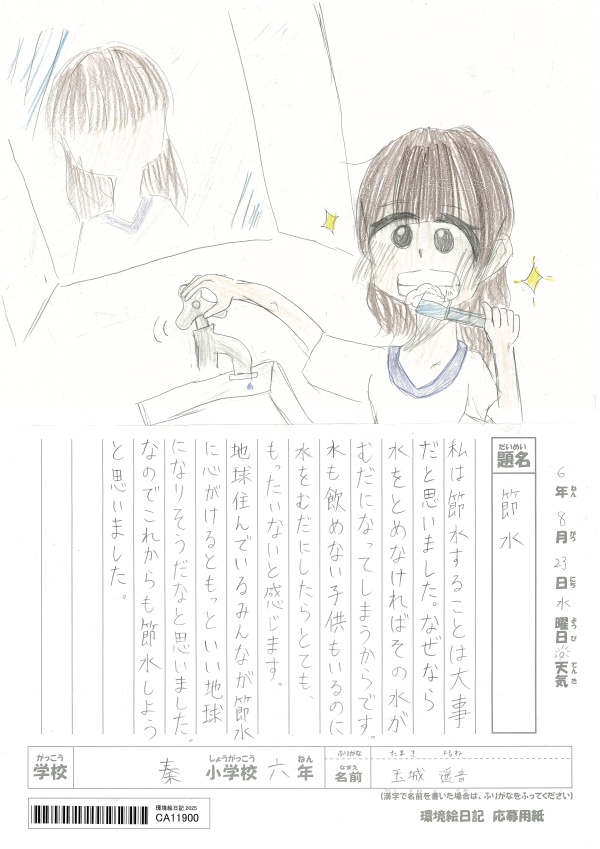 6年8月23日水曜日天気
ねん がつ にち ようび てんき
だいめい
題名
節水
私は節水することは大事
だと思いました。なぜなら
水をとめなければその水が
むだになってしまうからです。
水も飲めない子供もいるのに
水をむだにしたらとても、
もったいないと感じます。
地球住んでいるみんなが節水
に心がけるともっといい地球
になりそうだなと思いました。
なのでこれからも節水しよう
と思いました。
がっこう しょうがっこう ねん
学校 秦 小学校 六年
ふりがな たまき
なまえ
名前 玉城 遥音
(漢字で名前を書いた場合は、ふりがなをふってください)
環境絵日記 応募用紙
環境絵日記 2025
CA11900